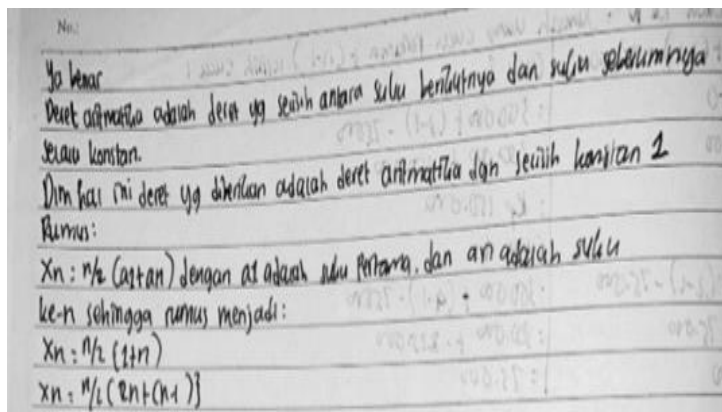 No.:
Ya benar
Deret aritmatika adalah deret yg selisih antara suku berikutnya dan suku sebelumnya
selalu konstan.
Dlm hal ini deret yg diberikan adalah deret aritmatika dgn selisih konstan 1
Rumus:
Xn : n/2 (a1+an) dengan a1 adalah suku pertama, dan an adalah suku
ke-n sehingga rumus menjadi:
Xn : n/2 (1+n)
Xn : n/2 (2n+(n-1)}